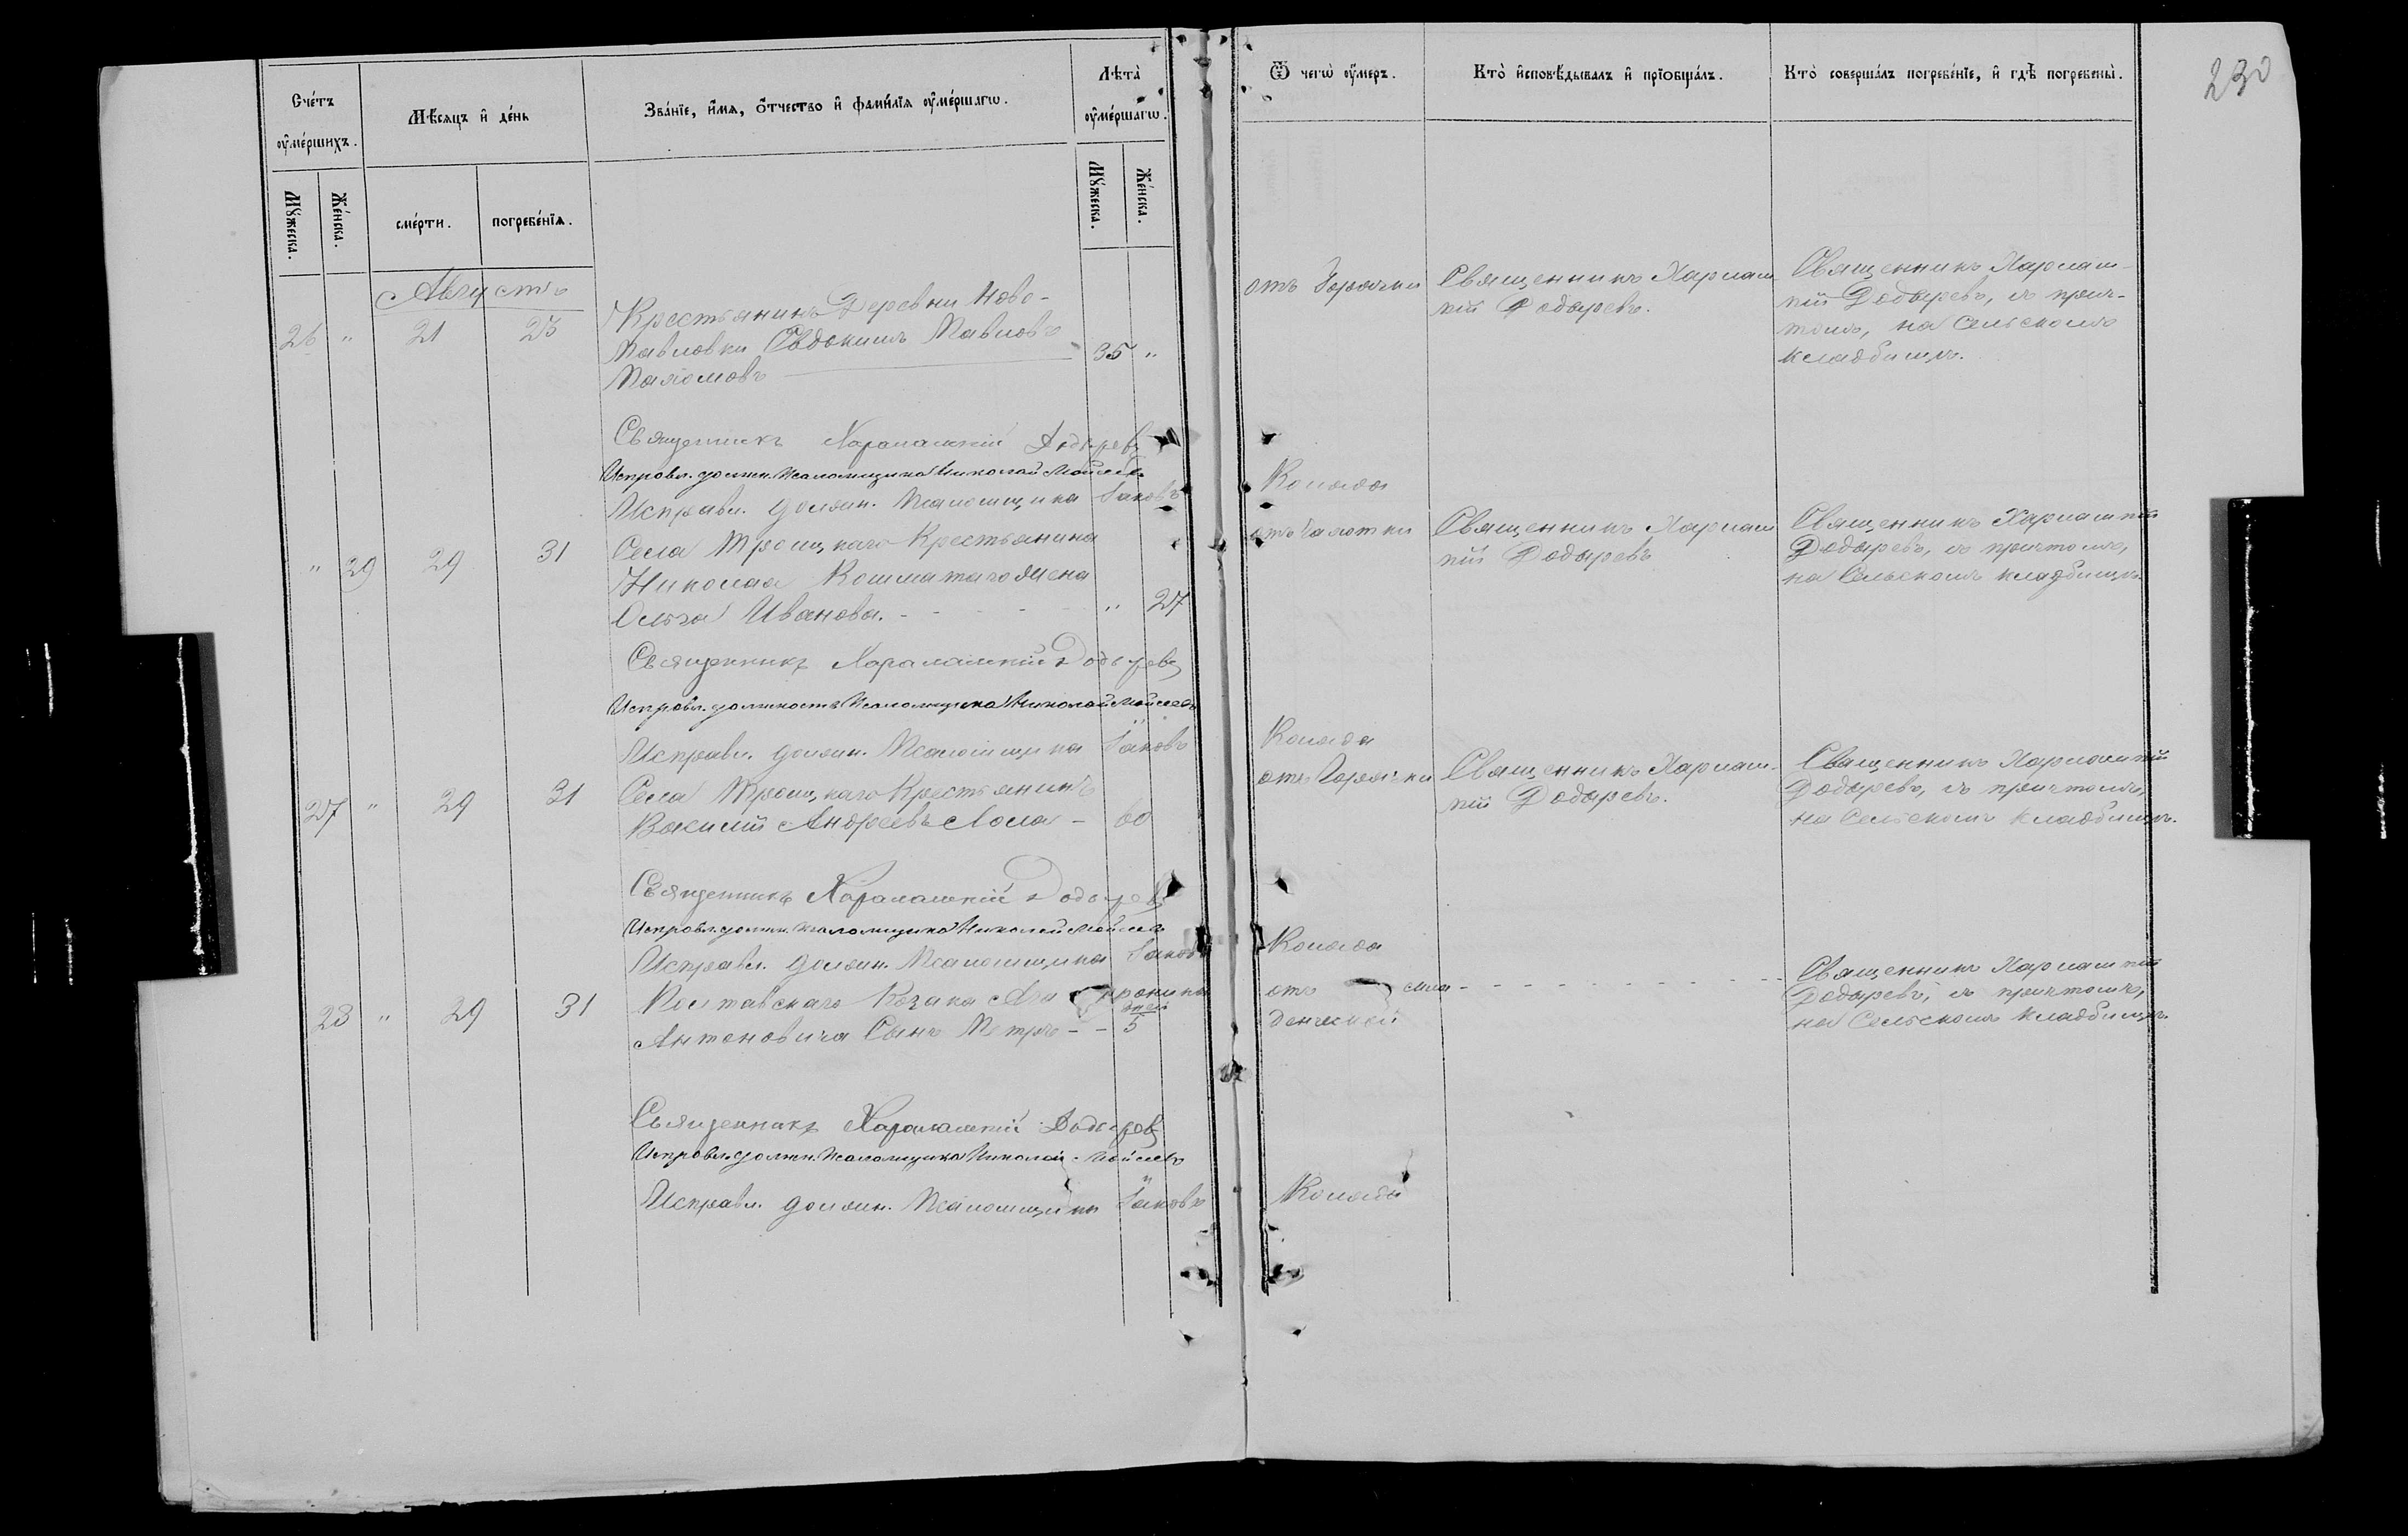 230
Счéтъ оу҆мéршихъ.
Мꙋ́жеска.
Жéнска.
Мѣ́сяцъ и҆ дéнь
смéрти.
погребéнїѧ.
Звáнїе, и҆́мѧ, о҆́тчество и҆ фамѝлїѧ оу҆мéршагѡ.
Лѣ́та оу҆мéршагѡ.
Мꙋ́жеска.
Жéнска.
Ѿ чегѡ̀ оу҆́меръ.
Ктò и҆сповѣ́дывалъ и҆ прїѻбщáлъ.
Ктò совершáлъ погребéнїе, и҆ гдѣ̀ погребены̀.
Августъ
26 " 21 23
Крестьянинъ Деревни Ново-
Павловки Евдокимъ Павловъ
35 "
отъ Горячки
Священникъ Харлам-
пій Додыревъ.
Священникъ Харлам-
пій Додыревъ, съ прич-
томъ, на Сельскомъ
кладбищѣ.
Священникъ Харалампій Додыревъ
Исправл. должн. Псаломщика Николай Мойсеевъ
Исправл. должн. Псаломщика Іаковъ Коляда
" 29 29 31
Села Троицкаго Крестьянина
Николая жена
Ольга Иванова. - - - -
" 27
отъ Чахотки
Священникъ Харлам
пій Додыревъ
Священникъ Харлампій
Додыревъ, съ причтомъ,
на Сельскомъ кладбищѣ.
Священникъ Харалампій Додыревъ
Исправл. должность Псаломщика Николай Мойсеевъ
Исправл. должн. Псаломщика Іаковъ Коляда
27 " 29 31
Села Троицкаго Крестьянинъ
Василій Андреевъ Лола -
60
отъ Горячки
Священникъ Харлам-
пій Додыревъ.
Священникъ Харлампій
Додыревъ, съ причтомъ,
на Сельскомъ кладбищѣ.
Священникъ Харалампій Додыревъ
Исправл. должн. Псаломщика Николай Мойсеевъ
Исправл. должн. Псаломщика Іаковъ Коляда
28 " 29 31
Полтавскаго Козака
Антоновича Сынъ Петръ - -
дней
5
отъ мла-
денческой
- - - - - - - - - -
Священникъ Харлампій
Додыревъ, съ причтомъ,
на Сельскомъ кладбищѣ.
Священникъ Харалампій Додыревъ
Исправл. должн. Псаломщика Николай Мойсеевъ
Исправл. должн. Псаломщика Іаковъ Коляда